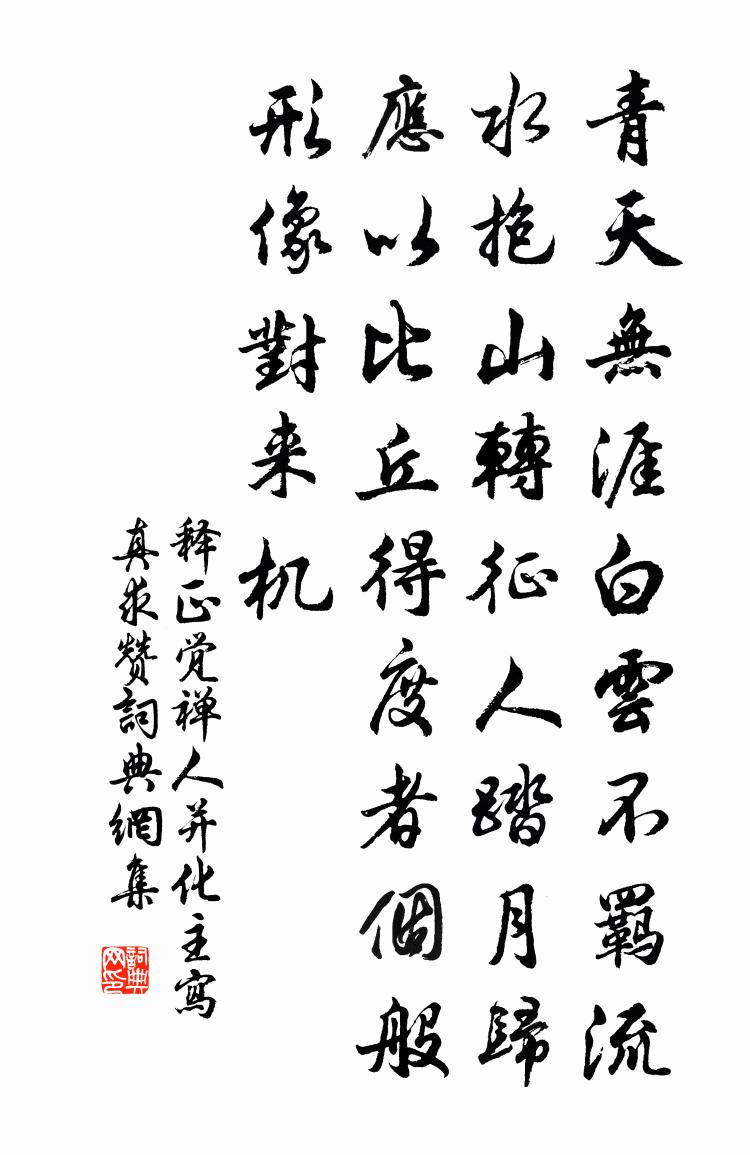 青天無涯白雲不羈流
水抱山轉征人踏月歸
應以比丘得度者個般
形像對来机
释正觉禅人并化主寫
真求赞詞典網集
詞典网印